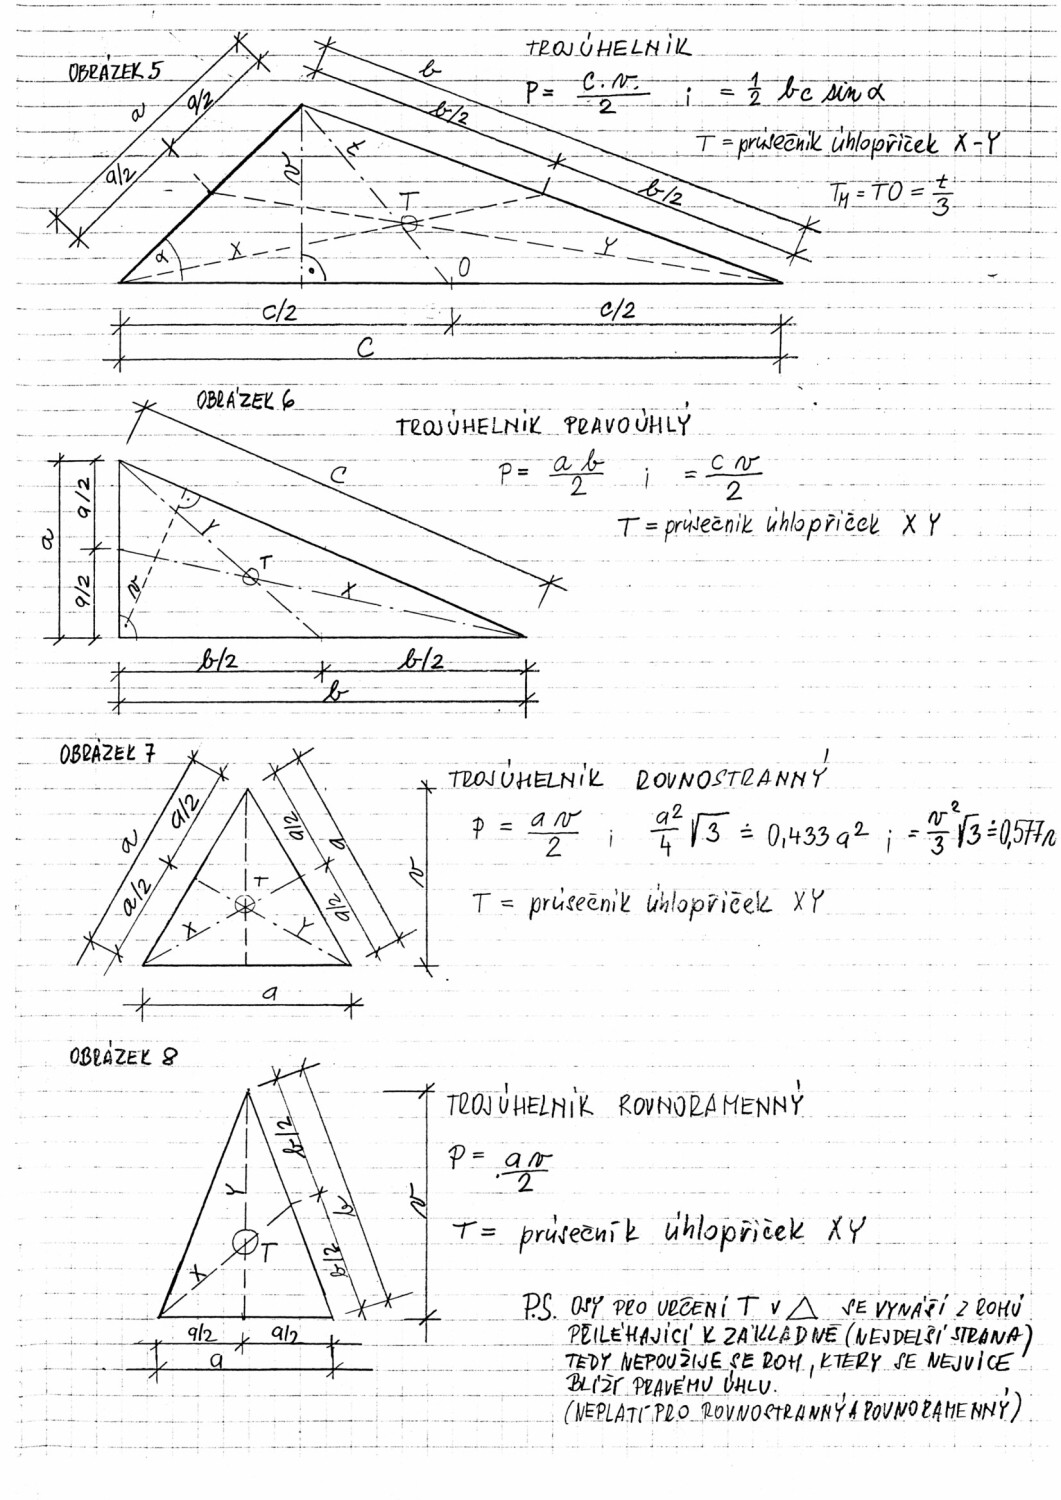 OBRÁZEK 5
TROJÚHELNÍK
P = c.v./2 ; = 1/2 bc sin α
T = průsečník úhlopříček X-Y
T_M = TO = t/3
a
a/2
a/2
b
b/2
b/2
v
t
T
X
Y
α
O
c/2
c/2
C
OBRÁZEK 6
TROJÚHELNÍK PRAVOÚHLÝ
P = a b/2 ; = c v/2
T = průsečník úhlopříček X Y
c
a
a/2
a/2
v
Y
T
X
b/2
b/2
b
OBRÁZEK 7
TROJÚHELNÍK ROVNOSTRANNÝ
P = a v/2 ; a²/4 √3 ≐ 0,433 a² ; = v²/3 √3 ≐ 0,577v
T = průsečník úhlopříček XY
a
a/2
a/2
a/2
a
a/2
v
T
X
Y
a
OBRÁZEK 8
TROJÚHELNÍK ROVNORAMENNÝ
P = a v/2
T = průsečník úhlopříček XY
b/2
b
b/2
v
Y
T
X
a/2
a/2
a
P.S. OSY PRO URČENÍ T V △ SE VYNÁŠÍ Z ROHŮ
PŘILÉHAJÍCÍ K ZÁKLADNĚ (NEJDELŠÍ STRANA)
TEDY NEPOUŽIJE SE ROH, KTERÝ SE NEJVÍCE
BLÍŽÍ PRAVÉMU ÚHLU.
(NEPLATÍ PRO ROVNOSTRANNÝ A ROVNORAMENNÝ)